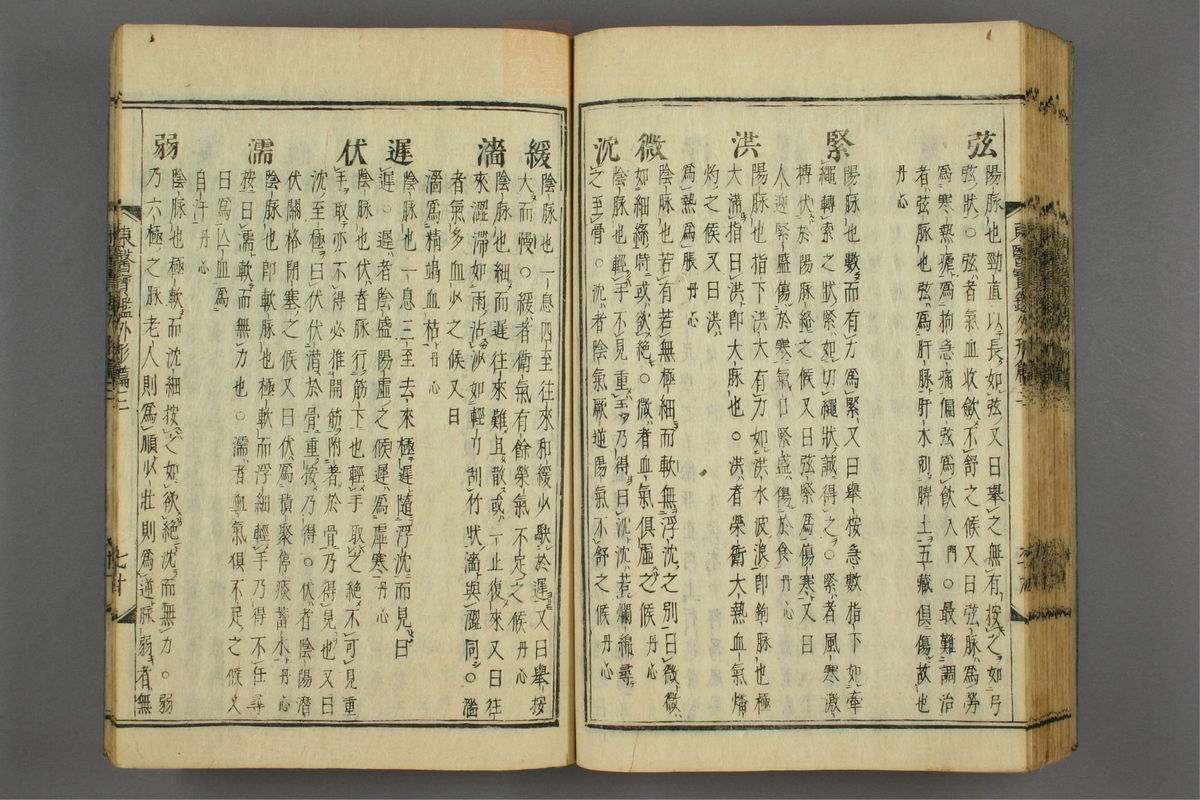 弦
陽脉也勁直以長如弦又日舉之無有按之如弓
弦狀○弦者氣血收斂不舒之候又日弦脉爲勞
爲寒熱瘧爲拘急痛偏弦爲飮入門○最難調治
者弦脉也弦爲肝脉肝木剋脾土五藏俱傷故也
丹心
緊
陽脉也數而有力爲緊又日舉按急數指下如牽
繩轉索之狀緊如切繩狀誠得之○緊者風寒激
搏伏於陽脉絡之候又日弦緊爲傷寒又日
人迎緊盛傷於寒氣口緊盛傷於食丹心
洪
陽脉也指下洪大有力如洪水波浪卽鉤脉也極
大滿指日洪卽大脉也○洪者榮衛大熱血氣燔
灼之候又日洪
爲熱爲脹丹心
微
陰脉也若有若無極細而軟無浮沈之別日微微
如細絲時或欲絶○微者血氣俱虛之候丹心
沈
陰脉也輕手不見重手乃得日沈沈若爛綿尋
之至骨○沈者陰氣厥逆陽氣不舒之候丹心
緩
陰脉也一息四至往來和緩少駃於遲又日舉按
大而慢○緩者衛氣有餘榮氣不足之候丹心
濇
陰脉也細而遲往來難且散或一止復來又日往
來澀滯如雨沾沙如輕刀刮竹狀濇與澀同○濇
者氣多血少之候又日
濇爲精竭血枯丹心
遲
陰脉也一息三至去來極遲隨浮沈而見日
遲○遲者陰盛陽虛之候遲爲虛寒丹心
伏
陰脉也伏者脉行筋下也輕手取之絶不可見重
手取亦不得必推開筋附著於骨乃得見也又日
沈至極日伏伏潜於骨重按乃得○伏者陰陽潛
伏關格閉塞之候又日伏爲積聚停痰蓄水丹心
濡
陰脉也卽軟脉也極軟而浮細輕手乃得不任尋
按日濡軟而無力也○濡者血氣俱不足之候又
日爲亡血爲
自汗丹心
弱
陰脉也極軟而沈細按之如欲絶沈而無力○弱
乃六極之脉老人則爲順少壯則爲逆脉弱者無
東醫寶鑑外形篇二